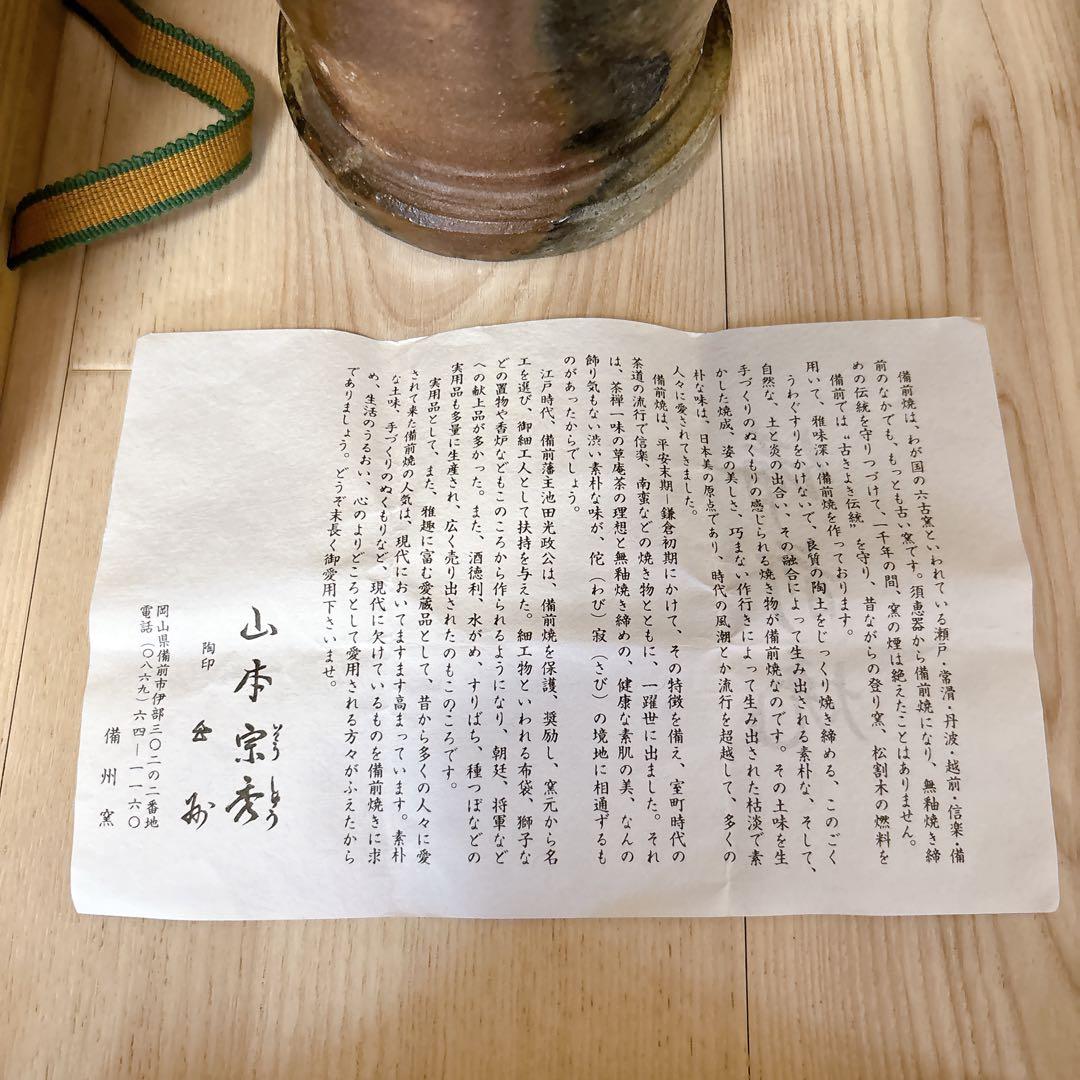 備前焼は、わが国の六古窯といわれている瀬戸・常滑・丹波・越前・信楽・備
前のなかでも、もっとも古い窯です。須恵器から備前焼になり、無釉焼き締
めの伝統を守りつづけて、一千年の間、窯の煙は絶えたことはありません。
備前では“古きよき伝統”を守り、昔ながらの登り窯、松割木の燃料を
用いて、雅味深い備前焼を作っております。
うわぐすりをかけないで、良質の陶土をじっくり焼き締める、このごく
自然な、土と炎の出合い、その融合によって生み出される素朴な、そして、
手づくりのぬくもりの感じられる焼き物が備前焼なのです。その土味を生
かした焼成、姿の美しさ、巧まない作行きによって生み出された枯淡で素
朴な味は、日本美の原点であり、時代の風潮とか流行を超越して、多くの
人々に愛されてきました。
備前焼は、平安末期―鎌倉初期にかけて、その特徴を備え、室町時代の
茶道の流行で信楽、南蛮などの焼き物とともに、一躍世に出ました。それ
は、茶禅一味の草庵茶の理想と無釉焼き締めの、健康な素肌の美、なんの
飾り気もない渋い素朴な味が、侘（わび）寂（さび）の境地に相通ずるも
のがあったからでしょう。
江戸時代、備前藩主池田光政公は、備前焼を保護、奨励し、窯元から名
工を選び、御細工人として扶持を与えた。細工物といわれる布袋、獅子な
どの置物や香炉などもこのころから作られるようになり、朝廷、将軍など
への献上品が多かった。また、酒徳利、水がめ、すりばち、種つぼなどの
実用品も多量に生産され、広く売り出されたのもこのころです。
実用品として、また、雅趣に富む愛蔵品として、昔から多くの人々に愛
されて来た備前焼の人気は、現代においてますます高まっています。素朴
な土味、手づくりのぬくもりなど、現代に欠けているものを備前焼きに求
め、生活のうるおい、心のよりどころとして愛用される方々がふえたから
でありましょう。どうぞ末長く御愛用下さいませ。
山本宗秀
そうしゅう
陶印
岡山県備前市伊部三〇二の二番地
電話（〇八六九）六四―一一六〇
備州窯